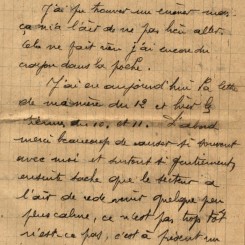 J'ai pu trouver un encrier mais
ça n'a l'air de ne pas bien aller.
Cela ne fait rien j'ai encore du
crayon dans la poche.
J'ai eu aujourd'hui la lettre
de ma mère du 12 et hier
du 10 et 11. D'abord
merci beaucoup de causer si souvent
avec moi et surtout si gentiment
ensuite sache que le secteur a
l'air de redevenir quelque peu
plus calme, ce n'est pas trop tôt
n'est-ce pas, c'est à présent un